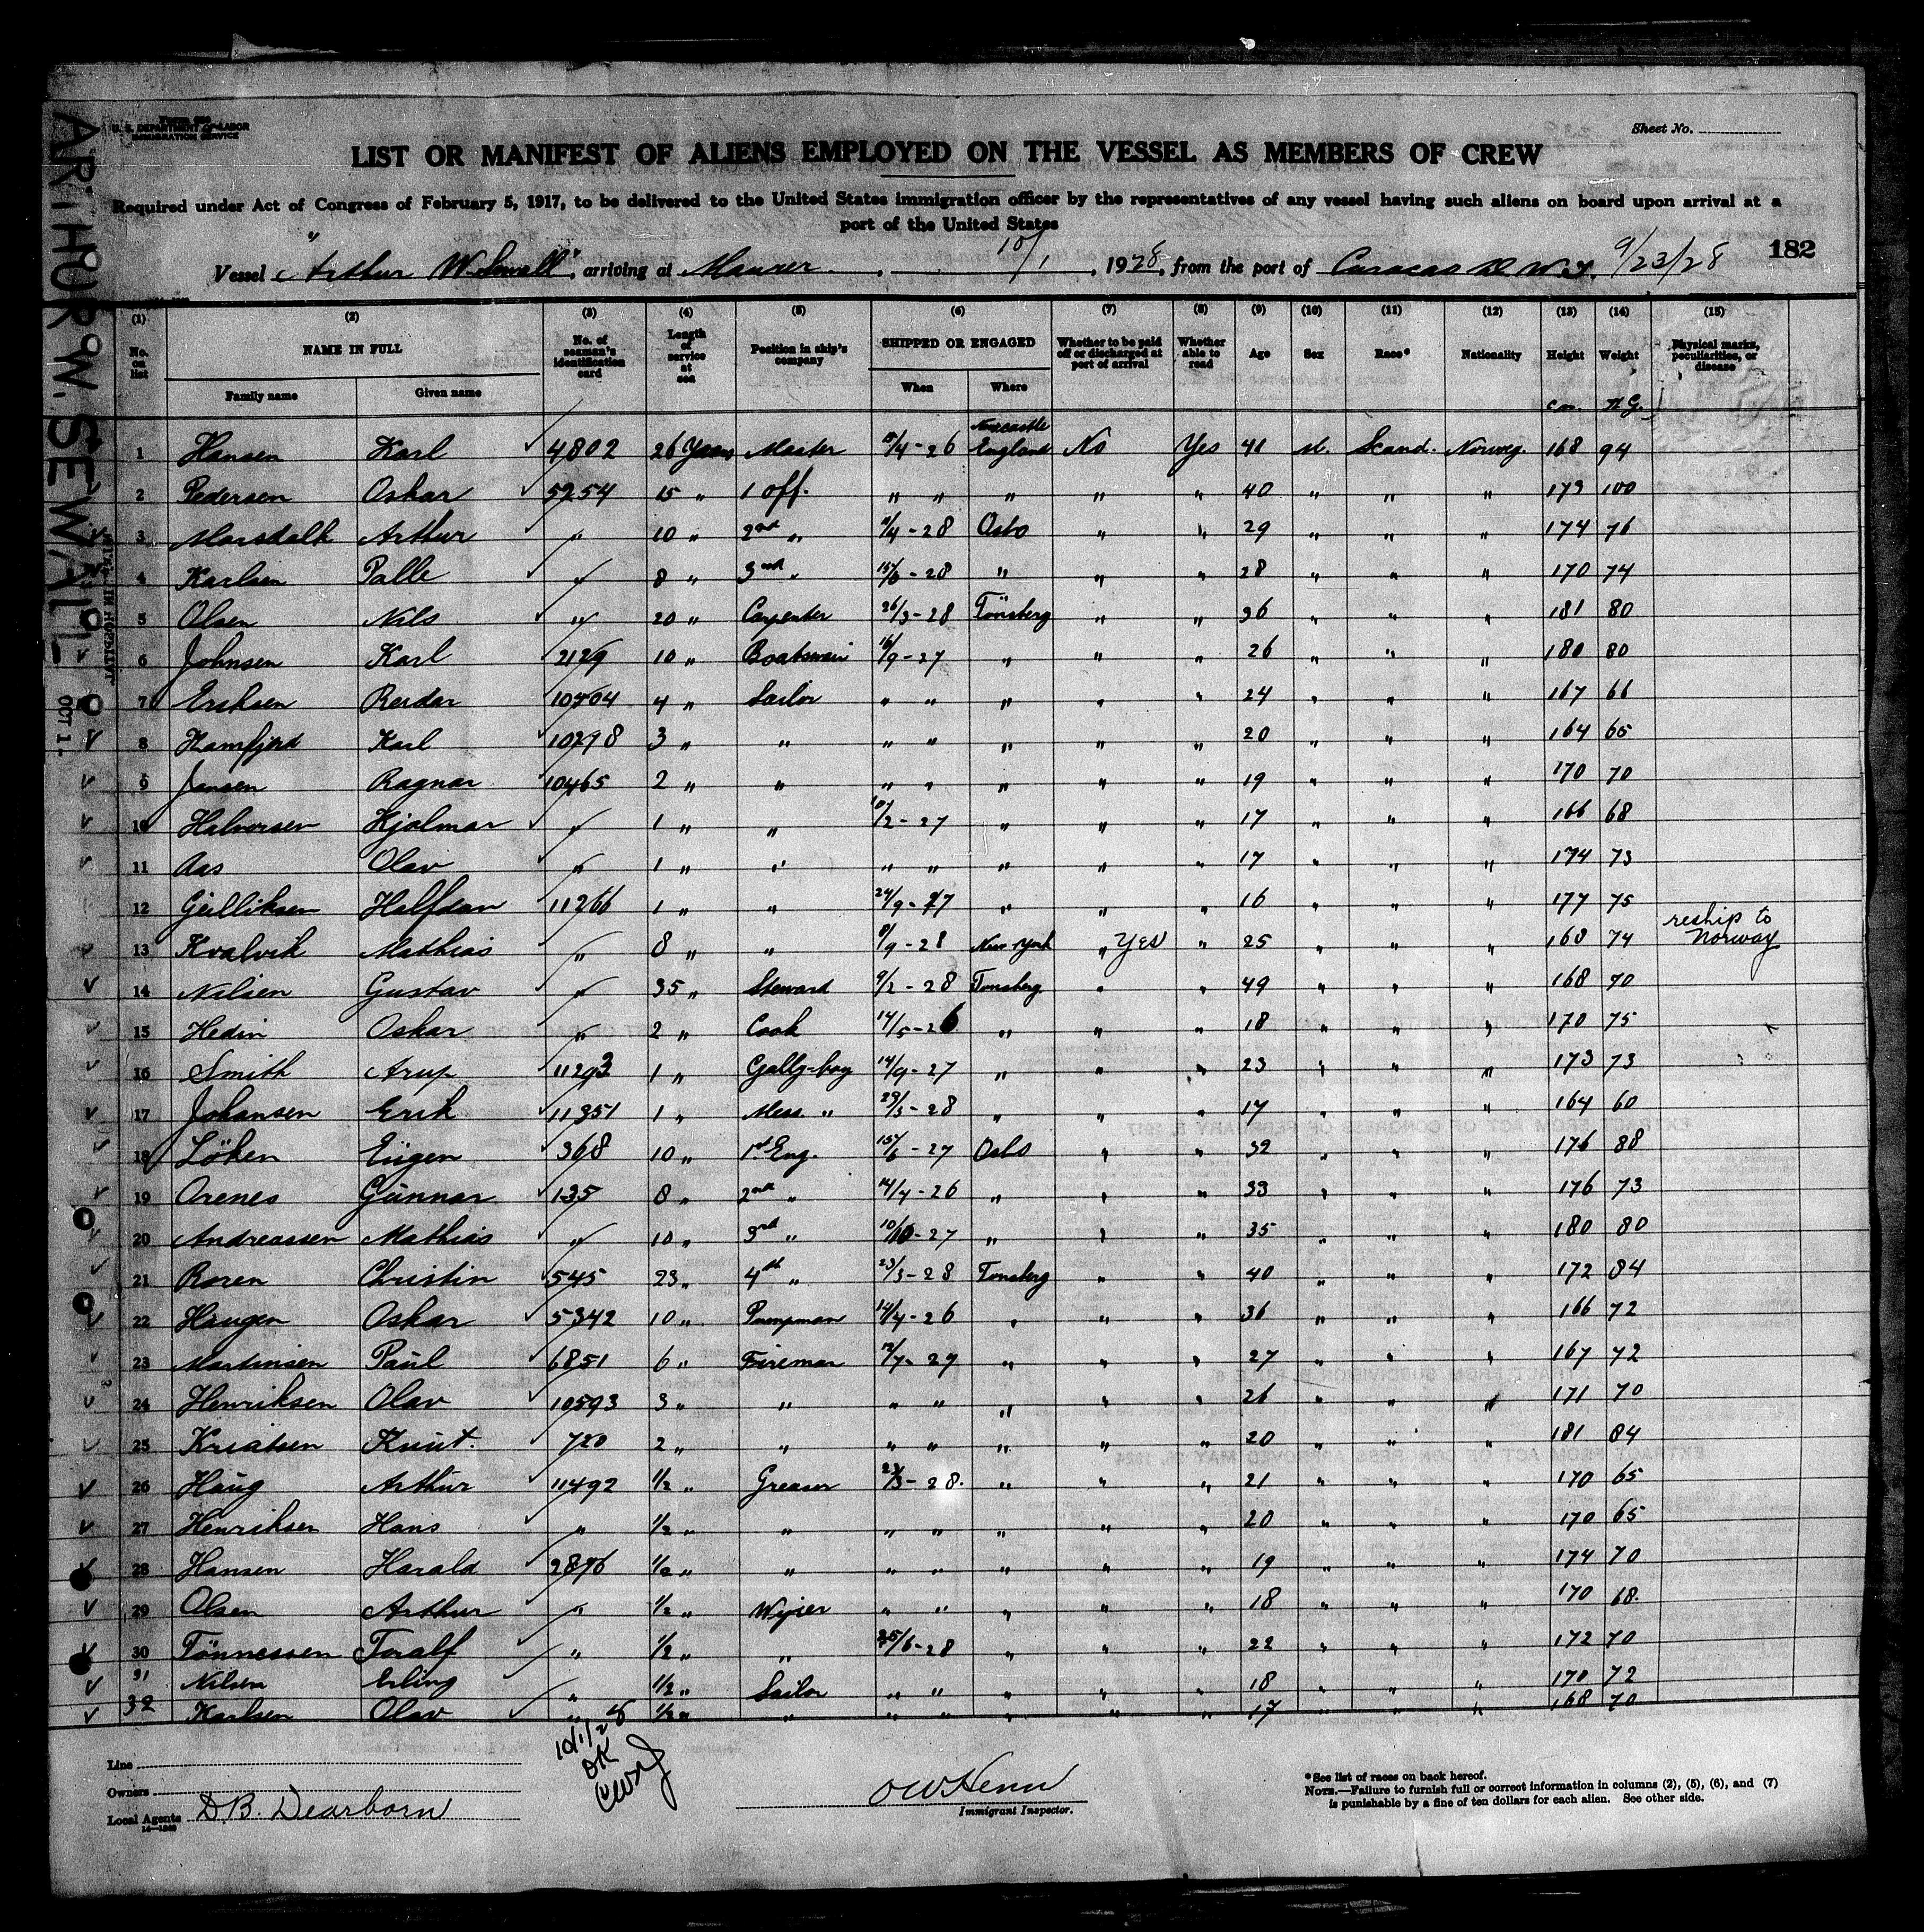 Form 680
U. S. DEPARTMENT OF LABOR
IMMIGRATION SERVICE
Sheet No.
LIST OR MANIFEST OF ALIENS EMPLOYED ON THE VESSEL AS MEMBERS OF CREW
Required under Act of Congress of February 5, 1917, to be delivered to the United States immigration officer by the representatives of any vessel having such aliens on board upon arrival at a
port of the United States
Vessel "Arthur W. Sewall", arriving at Maurer, 10/1, 1928, from the port of Curacao D. W. I. 9/23/28 182
ARTHUR W. SEWALL
OCT 1-
(1) (2) (3) (4) (5) (6) (7) (8) (9) (10) (11) (12) (13) (14) (15)
No. on list NAME IN FULL No. of seaman's identification card Length of service at sea Position in ship's company SHIPPED OR ENGAGED Whether to be paid off or discharged at port of arrival Whether able to read Age Sex Race* Nationality Height Weight Physical marks, peculiarities, or disease
Family name Given name When Where cm. KG.
1 Hansen Karl 4802 26 Years Master /4-26 Newcastle England No Yes 41 M. Scand. Norweg. 168 94
2 Pedersen Oskar 5254 15 " 1 Off. " " " " " 40 " " " 173 100
3 Arthur " 10 " 2nd " /4-28 Oslo " " 29 " " " 174 76
4 Karlsen Palle " 8 " 3rd " 15/6-28 " " " 28 " " " 170 74
5 Olsen Nils " 20 " Carpenter 26/3-28 Tönsberg " " 36 " " " 181 80
6 Johnsen Karl 2129 10 " Boatswain 16/9-27 " " " 26 " " " 180 80
7 Eriksen Reidar 10404 4 " Sailor " " " " " 24 " " " 167 66
8 Hamfjord Karl 10298 3 " " " " " " " 20 " " " 164 65
9 Jansen Ragnar 10465 2 " " " " " " " 19 " " " 170 70
10 Halvorsen Hjalmar " 1 " " /2-27 " " " 17 " " " 166 68
11 Aas Olav " 1 " " " " " " " 17 " " " 174 73
12 Gulliksen Halfdan 11266 1 " " 24/9-27 " " " 16 " " " 177 75
13 Kvalvik Mathias " 8 " " 8/9-28 New York " Yes " 25 " " " 168 74 reship to Norway
14 Nilsen Gustav " 35 " Steward 9/2-28 Tonsberg " " 49 " " " 168 70
15 Hedin Oskar " 2 " Cook 14/5-26 " " " 18 " " " 170 75
16 Smith Arup 11293 1 " Gally-boy 14/9-27 " " " 23 " " " 173 73
17 Johansen Erik 11351 1 " Mess " 23/3-28 " " " 17 " " " 164 60
18 Löken Eugen 368 10 " 1st Eng. 15/6-27 Oslo " " 32 " " " 176 88
19 Arenes Gunnar 135 8 " 2nd " 14/4-26 " " " 33 " " " 176 73
20 Andreassen Mathias " 10 " 3rd " 10/10-27 " " " 35 " " " 180 80
21 Roren Christin 545 23 " 4th " 23/3-28 Tonsberg " " 40 " " " 172 84
22 Haugen Oskar 5342 10 " Pumpman 14/4-26 " " " 36 " " " 166 72
23 Martinsen Paul 6851 6 " Fireman 12/7-27 " " " 27 " " " 167 72
24 Henriksen Olav 10593 3 " " " " " " " 26 " " " 171 70
25 Kristsen Knut. 720 2 " " " " " " " 20 " " " 181 84
26 Haug Arthur 11492 1/2 " Greaser 23/3-28. " " " 21 " " " 170 65
27 Henriksen Hans " 1/2 " " " " " " " 20 " " " 170 65
28 Hansen Harald 2876 1/2 " " " " " " " 19 " " " 174 70
29 Olsen Arthur " 1/2 " Wiper " " " " " 18 " " " 170 68.
30 Tönnessen Toralf " 1/2 " " 25/6-28 " " " 22 " " " 172 70
31 Nilsen Erling " 1/2 " Sailor " " " " " 18 " " " 170 72
32 Karlsen Olav " 1/2 " " " " " " " 17 " " " 168 70
10/1/28
OK
Line
Owners
Local Agents D. B. Dearborn
14—1240
Immigrant Inspector.
*See list of races on back hereof.
NOTE.—Failure to furnish full or correct information in columns (2), (5), (6), and (7)
is punishable by a fine of ten dollars for each alien. See other side.